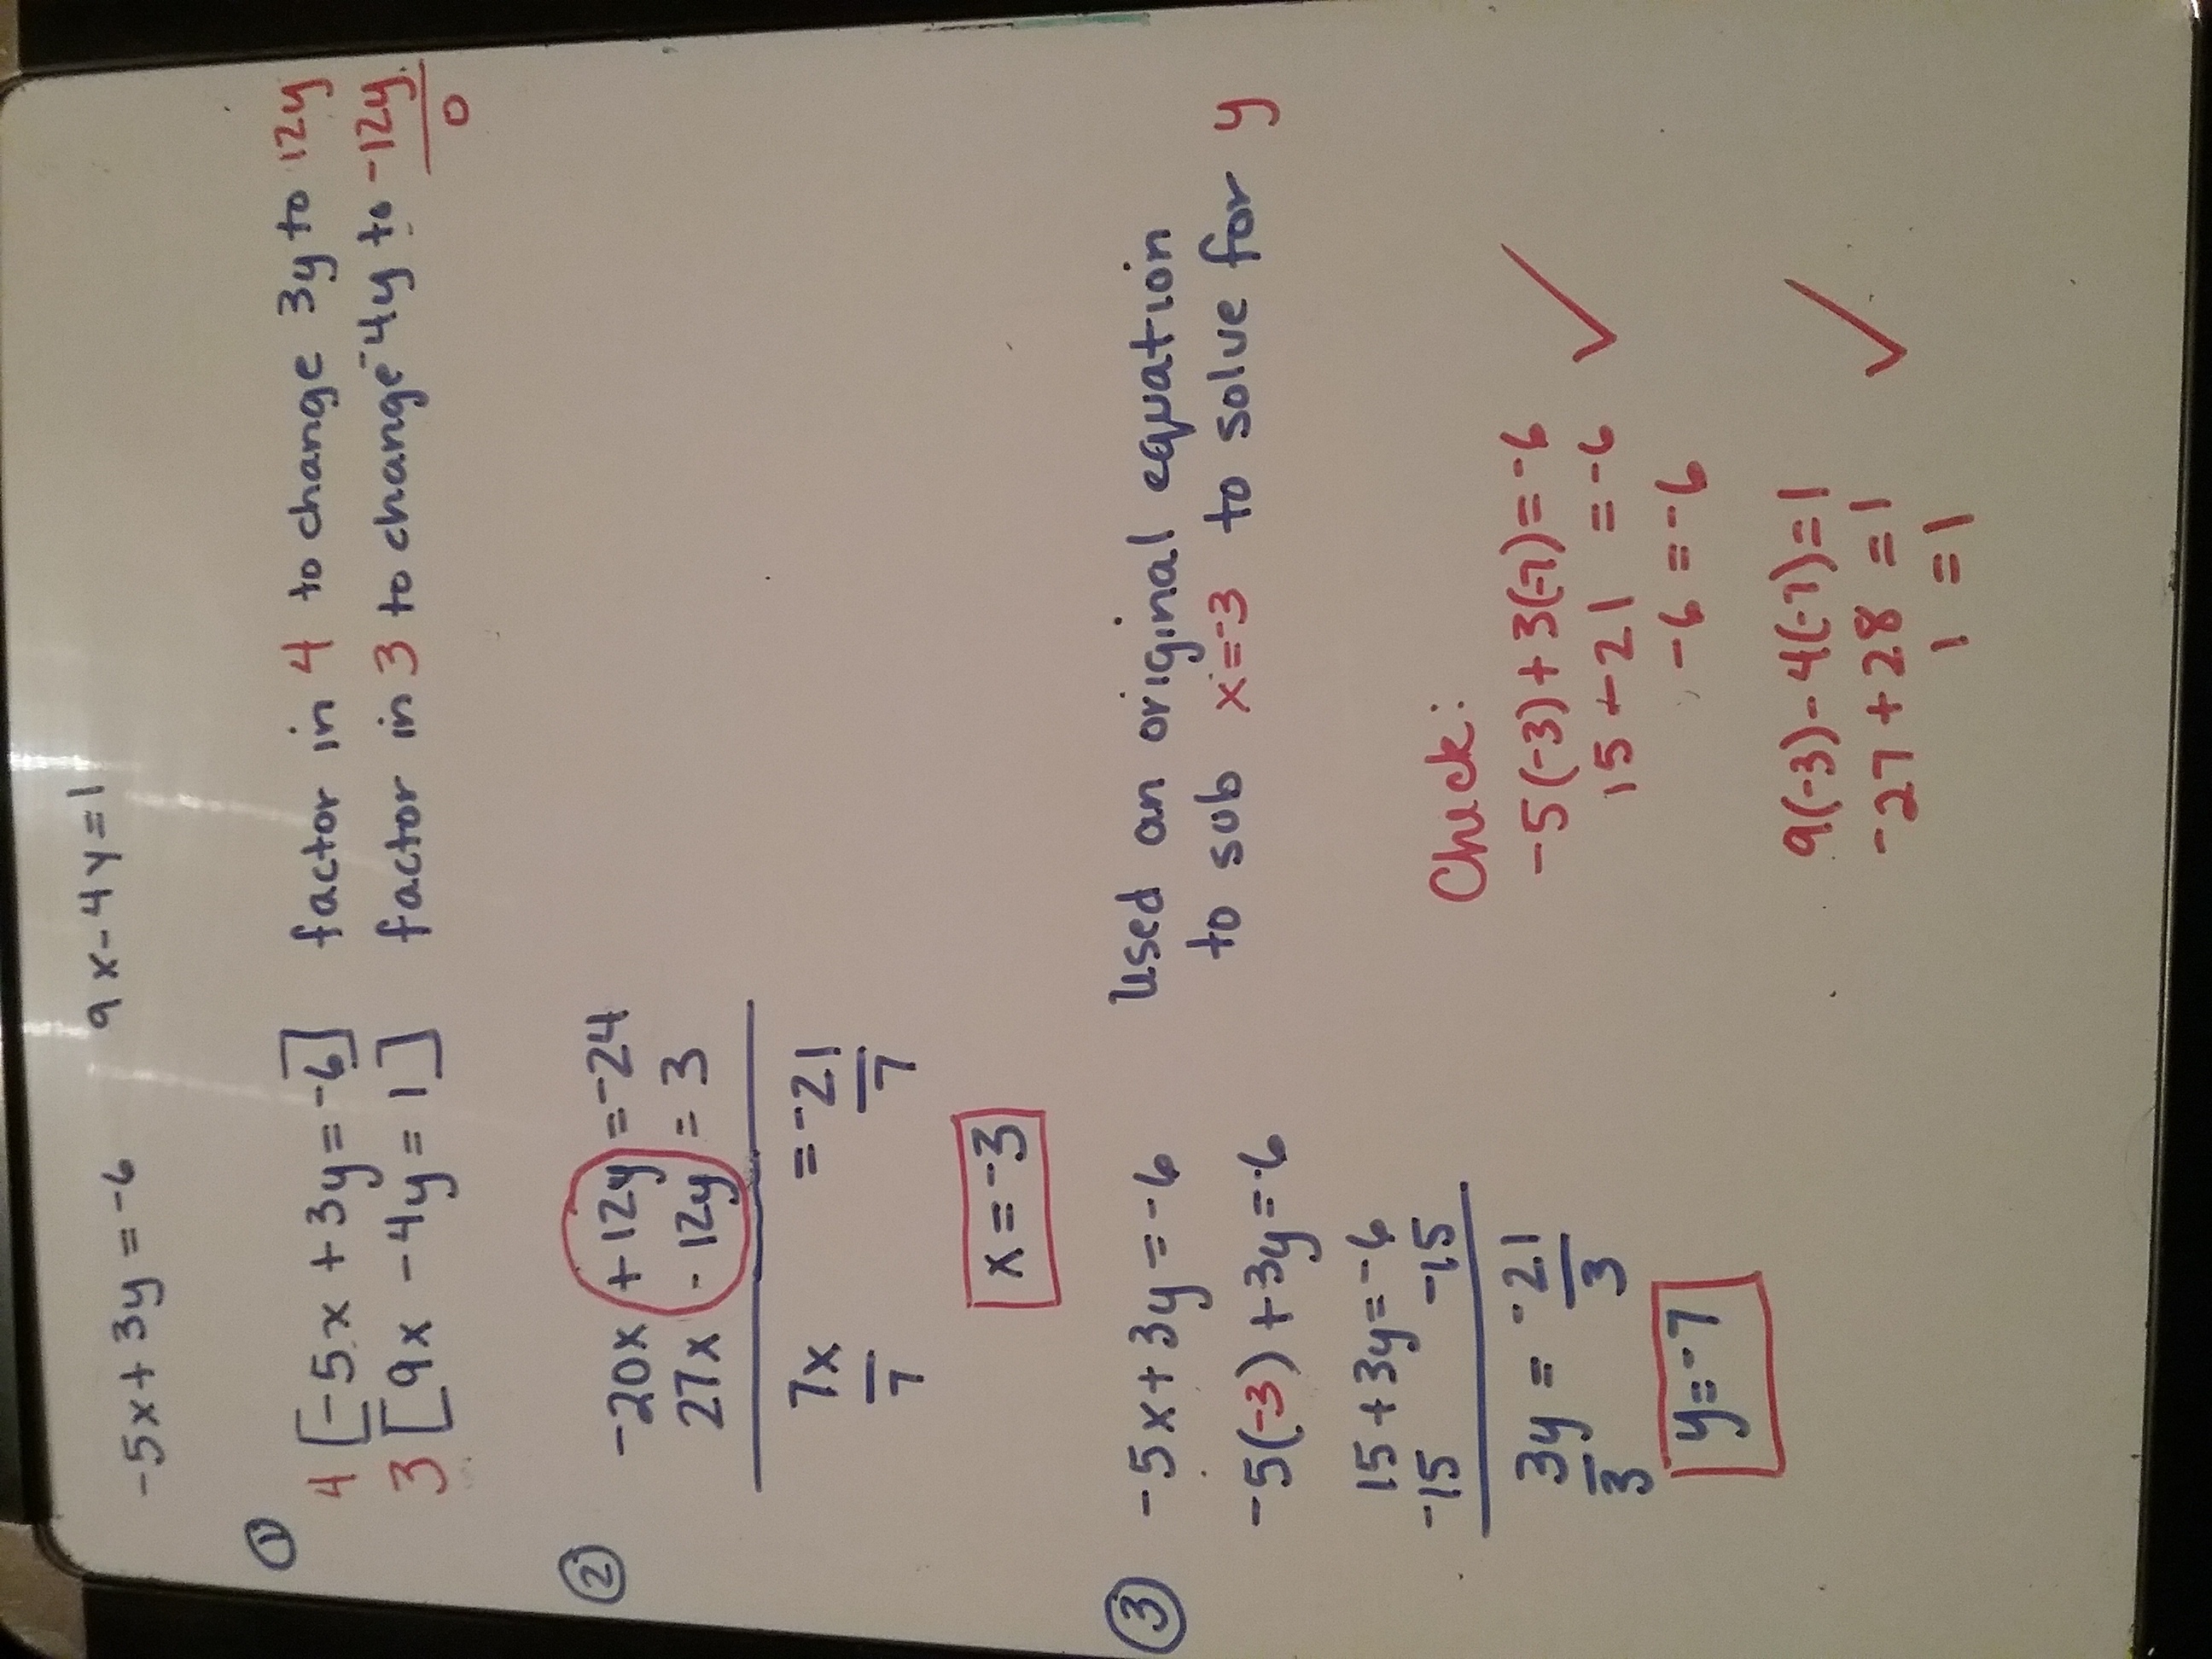 -5x + 3y = -6    9x - 4y = 1
①
4 [-5x + 3y = -6]    factor in 4 to change 3y to 12y
3 [9x - 4y = 1]    factor in 3 to change -4y to -12y
0
②
-20x + 12y = -24
27x - 12y = 3
7x = -21
7    7
x = -3
③
-5x + 3y = -6    Used an original equation
to sub x = -3 to solve for y
-5(-3) + 3y = -6
15 + 3y = -6
-15    -15
3y = -21
3    3
y = -7
Check:
-5(-3) + 3(-7) = -6 ✓
15 + -21 = -6
-6 = -6
9(-3) - 4(-7) = 1 ✓
-27 + 28 = 1
1 = 1